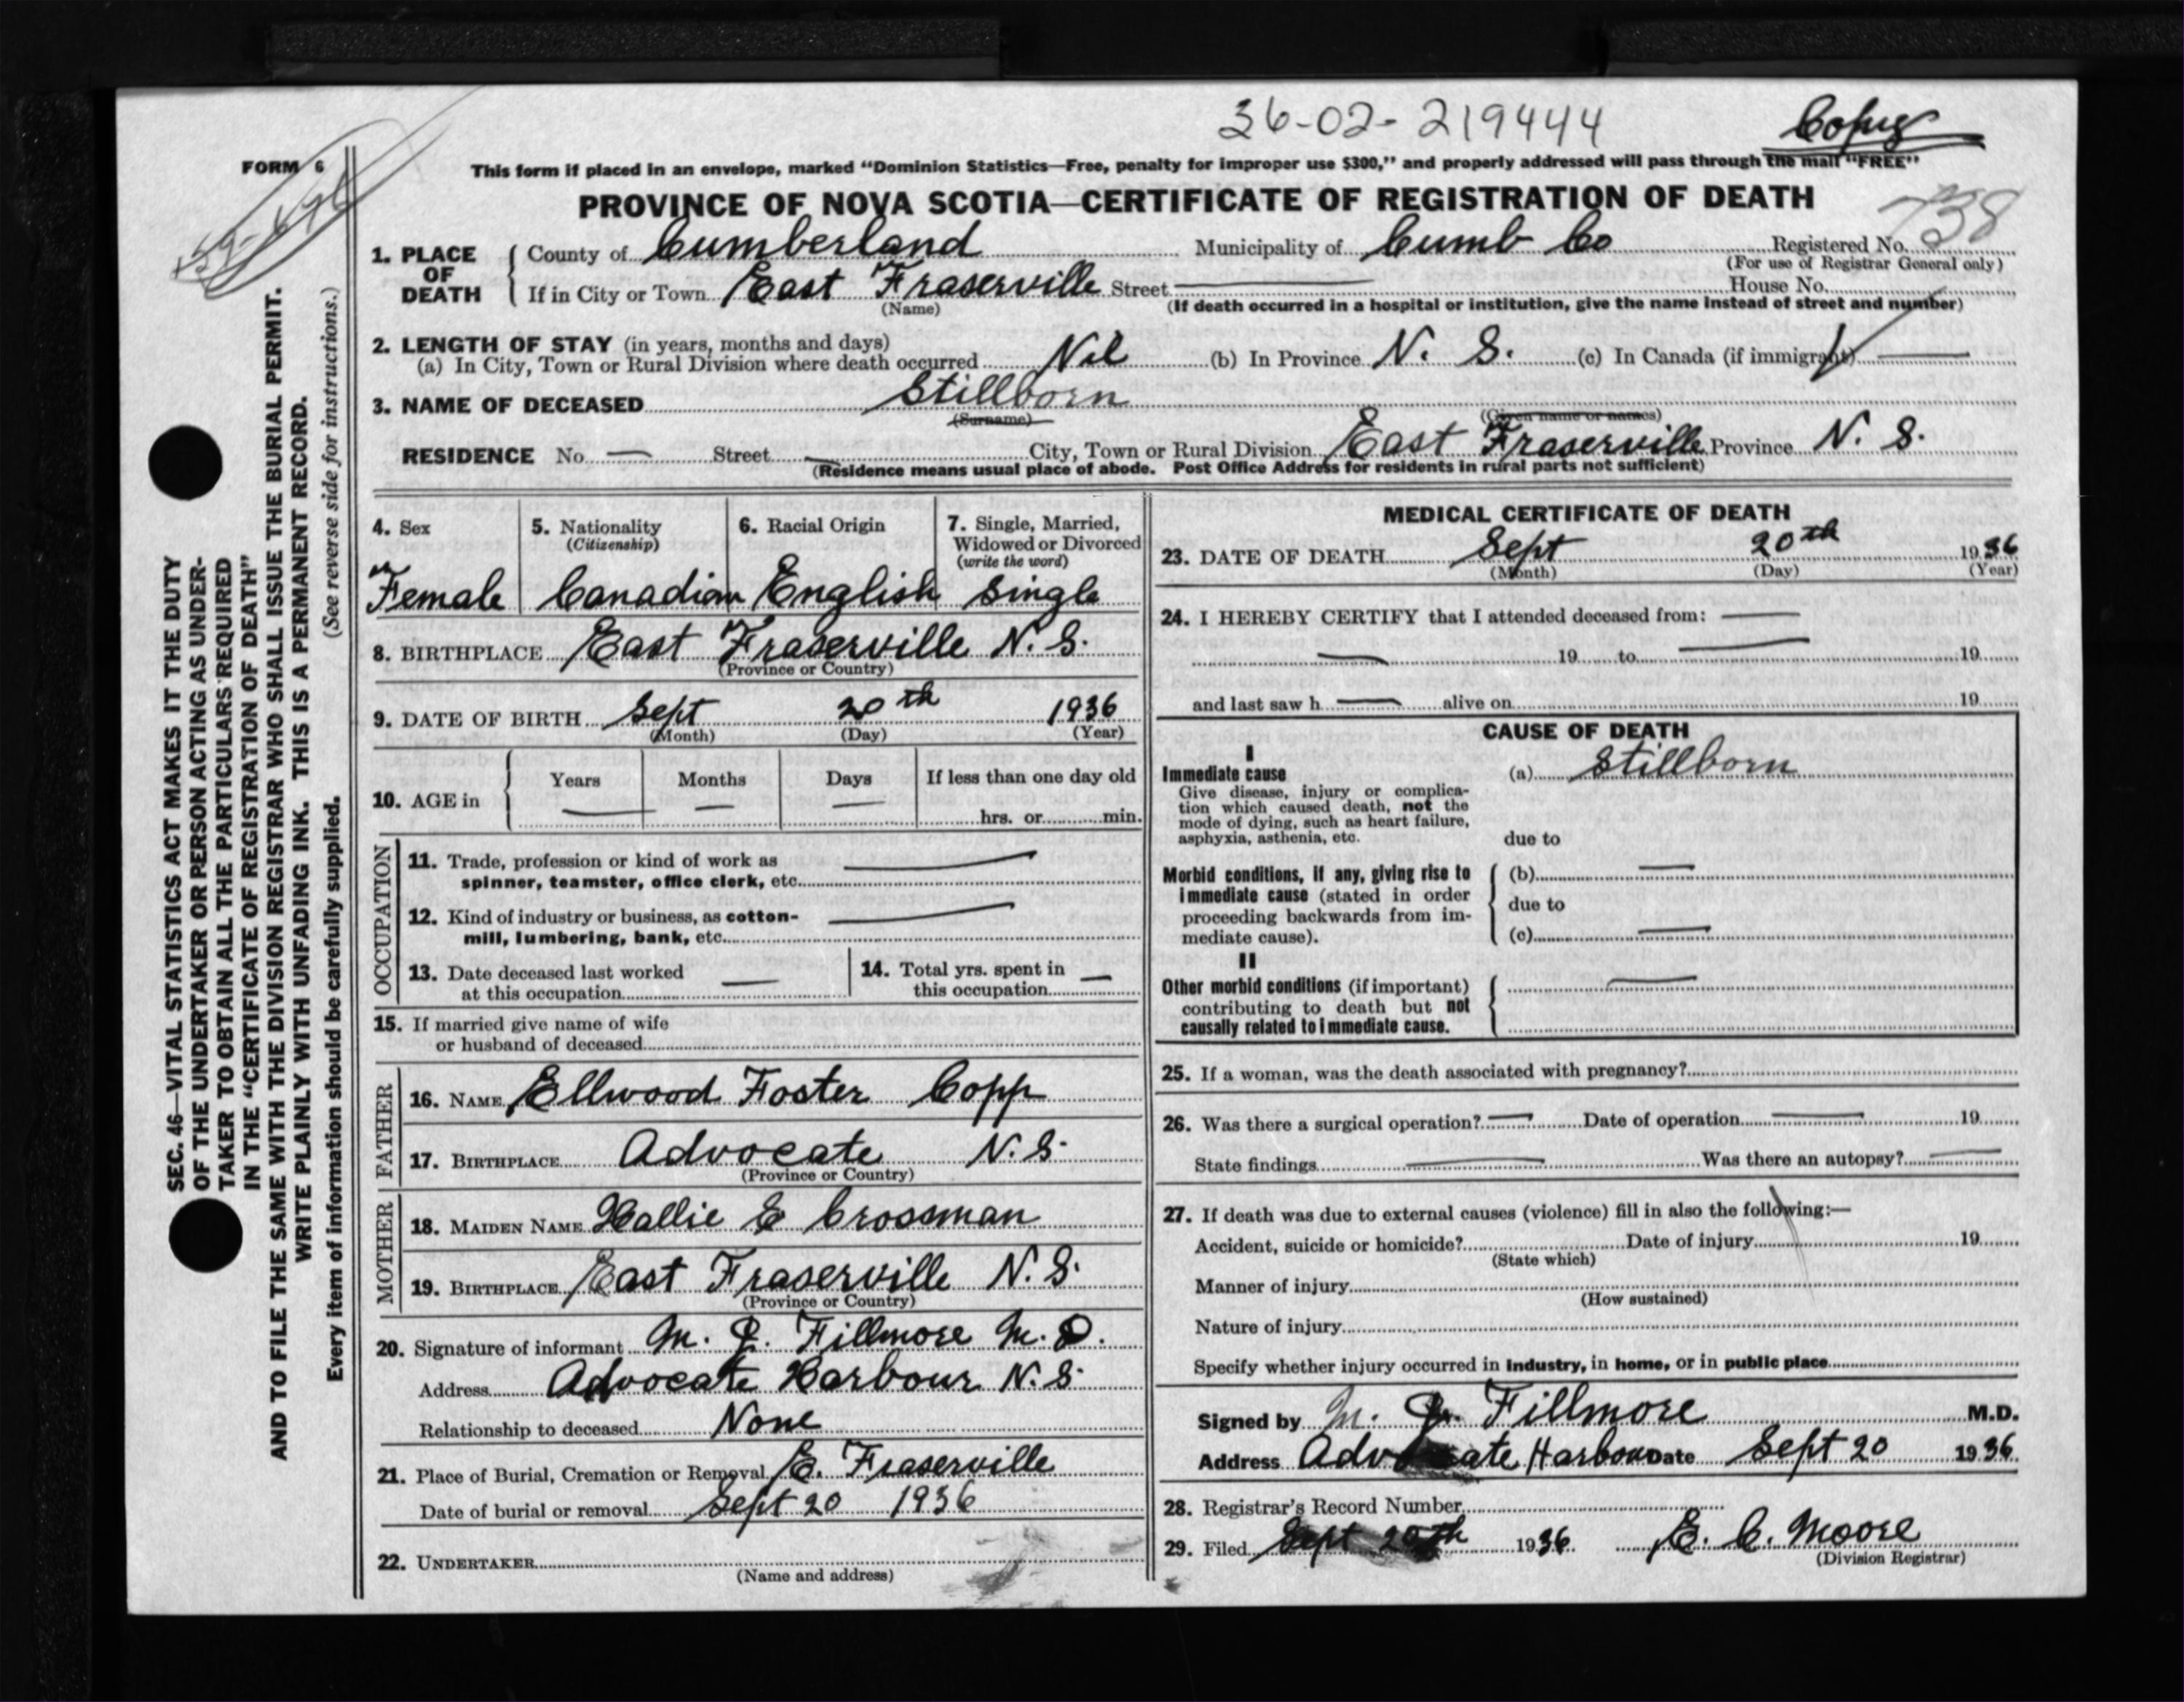 36-02-219444 Copy
FORM 6
This form if placed in an envelope, marked "Dominion Statistics—Free, penalty for improper use $300," and properly addressed will pass through the mail "FREE"
PROVINCE OF NOVA SCOTIA—CERTIFICATE OF REGISTRATION OF DEATH
738
1. PLACE OF DEATH County of Cumberland Municipality of Cumb Co Registered No.
(For use of Registrar General only)
If in City or Town East Fraserville Street House No.
(Name) (If death occurred in a hospital or institution, give the name instead of street and number)
2. LENGTH OF STAY (in years, months and days)
(a) In City, Town or Rural Division where death occurred Nil (b) In Province N. S. (c) In Canada (if immigrant)
3. NAME OF DECEASED Stillborn
(Surname) (Given name or names)
RESIDENCE No. — Street — City, Town or Rural Division East Fraserville Province N. S.
(Residence means usual place of abode. Post Office Address for residents in rural parts not sufficient)
4. Sex 5. Nationality 6. Racial Origin 7. Single, Married,
(Citizenship) Widowed or Divorced
(write the word)
Female Canadian English Single
8. BIRTHPLACE East Fraserville N. S.
(Province or Country)
9. DATE OF BIRTH Sept 20th 1936
(Month) (Day) (Year)
10. AGE in Years Months Days If less than one day old
— — — hrs. or min.
OCCUPATION
11. Trade, profession or kind of work as
spinner, teamster, office clerk, etc. —
12. Kind of industry or business, as cotton-
mill, lumbering, bank, etc. —
13. Date deceased last worked 14. Total yrs. spent in
at this occupation — this occupation —
15. If married give name of wife
or husband of deceased
FATHER
16. NAME Ellwood Foster Copp
17. BIRTHPLACE Advocate N. S.
(Province or Country)
MOTHER
18. MAIDEN NAME Hallie E Crossman
19. BIRTHPLACE East Fraserville N. S.
(Province or Country)
20. Signature of informant M. J. Fillmore M. D.
Address Advocate Harbour N. S.
Relationship to deceased None
21. Place of Burial, Cremation or Removal E. Fraserville
Date of burial or removal Sept 20 1936
22. UNDERTAKER
(Name and address)
MEDICAL CERTIFICATE OF DEATH
23. DATE OF DEATH Sept 20th 1936
(Month) (Day) (Year)
24. I HEREBY CERTIFY that I attended deceased from: —
— 19 to — 19
and last saw h — alive on 19
CAUSE OF DEATH
I
Immediate cause (a) Stillborn
Give disease, injury or complica-
tion which caused death, not the
mode of dying, such as heart failure,
asphyxia, asthenia, etc. due to
Morbid conditions, if any, giving rise to (b) —
immediate cause (stated in order due to
proceeding backwards from im-
mediate cause). (c) —
II
Other morbid conditions (if important) —
contributing to death but not
causally related to immediate cause.
25. If a woman, was the death associated with pregnancy?
26. Was there a surgical operation? — Date of operation — 19
State findings — Was there an autopsy? —
27. If death was due to external causes (violence) fill in also the following:—
Accident, suicide or homicide? Date of injury 19
(State which)
Manner of injury
(How sustained)
Nature of injury
Specify whether injury occurred in industry, in home, or in public place
Signed by M. J. Fillmore M.D.
Address Advocate Harbour Date Sept 20 1936
28. Registrar's Record Number
29. Filed Sept 20th 1936. E. C. Moore
(Division Registrar)
SEC. 46—VITAL STATISTICS ACT MAKES IT THE DUTY
OF THE UNDERTAKER OR PERSON ACTING AS UNDER-
TAKER TO OBTAIN ALL THE PARTICULARS REQUIRED
IN THE "CERTIFICATE OF REGISTRATION OF DEATH"
AND TO FILE THE SAME WITH THE DIVISION REGISTRAR WHO SHALL ISSUE THE BURIAL PERMIT.
WRITE PLAINLY WITH UNFADING INK. THIS IS A PERMANENT RECORD.
Every item of information should be carefully supplied. (See reverse side for instructions.)